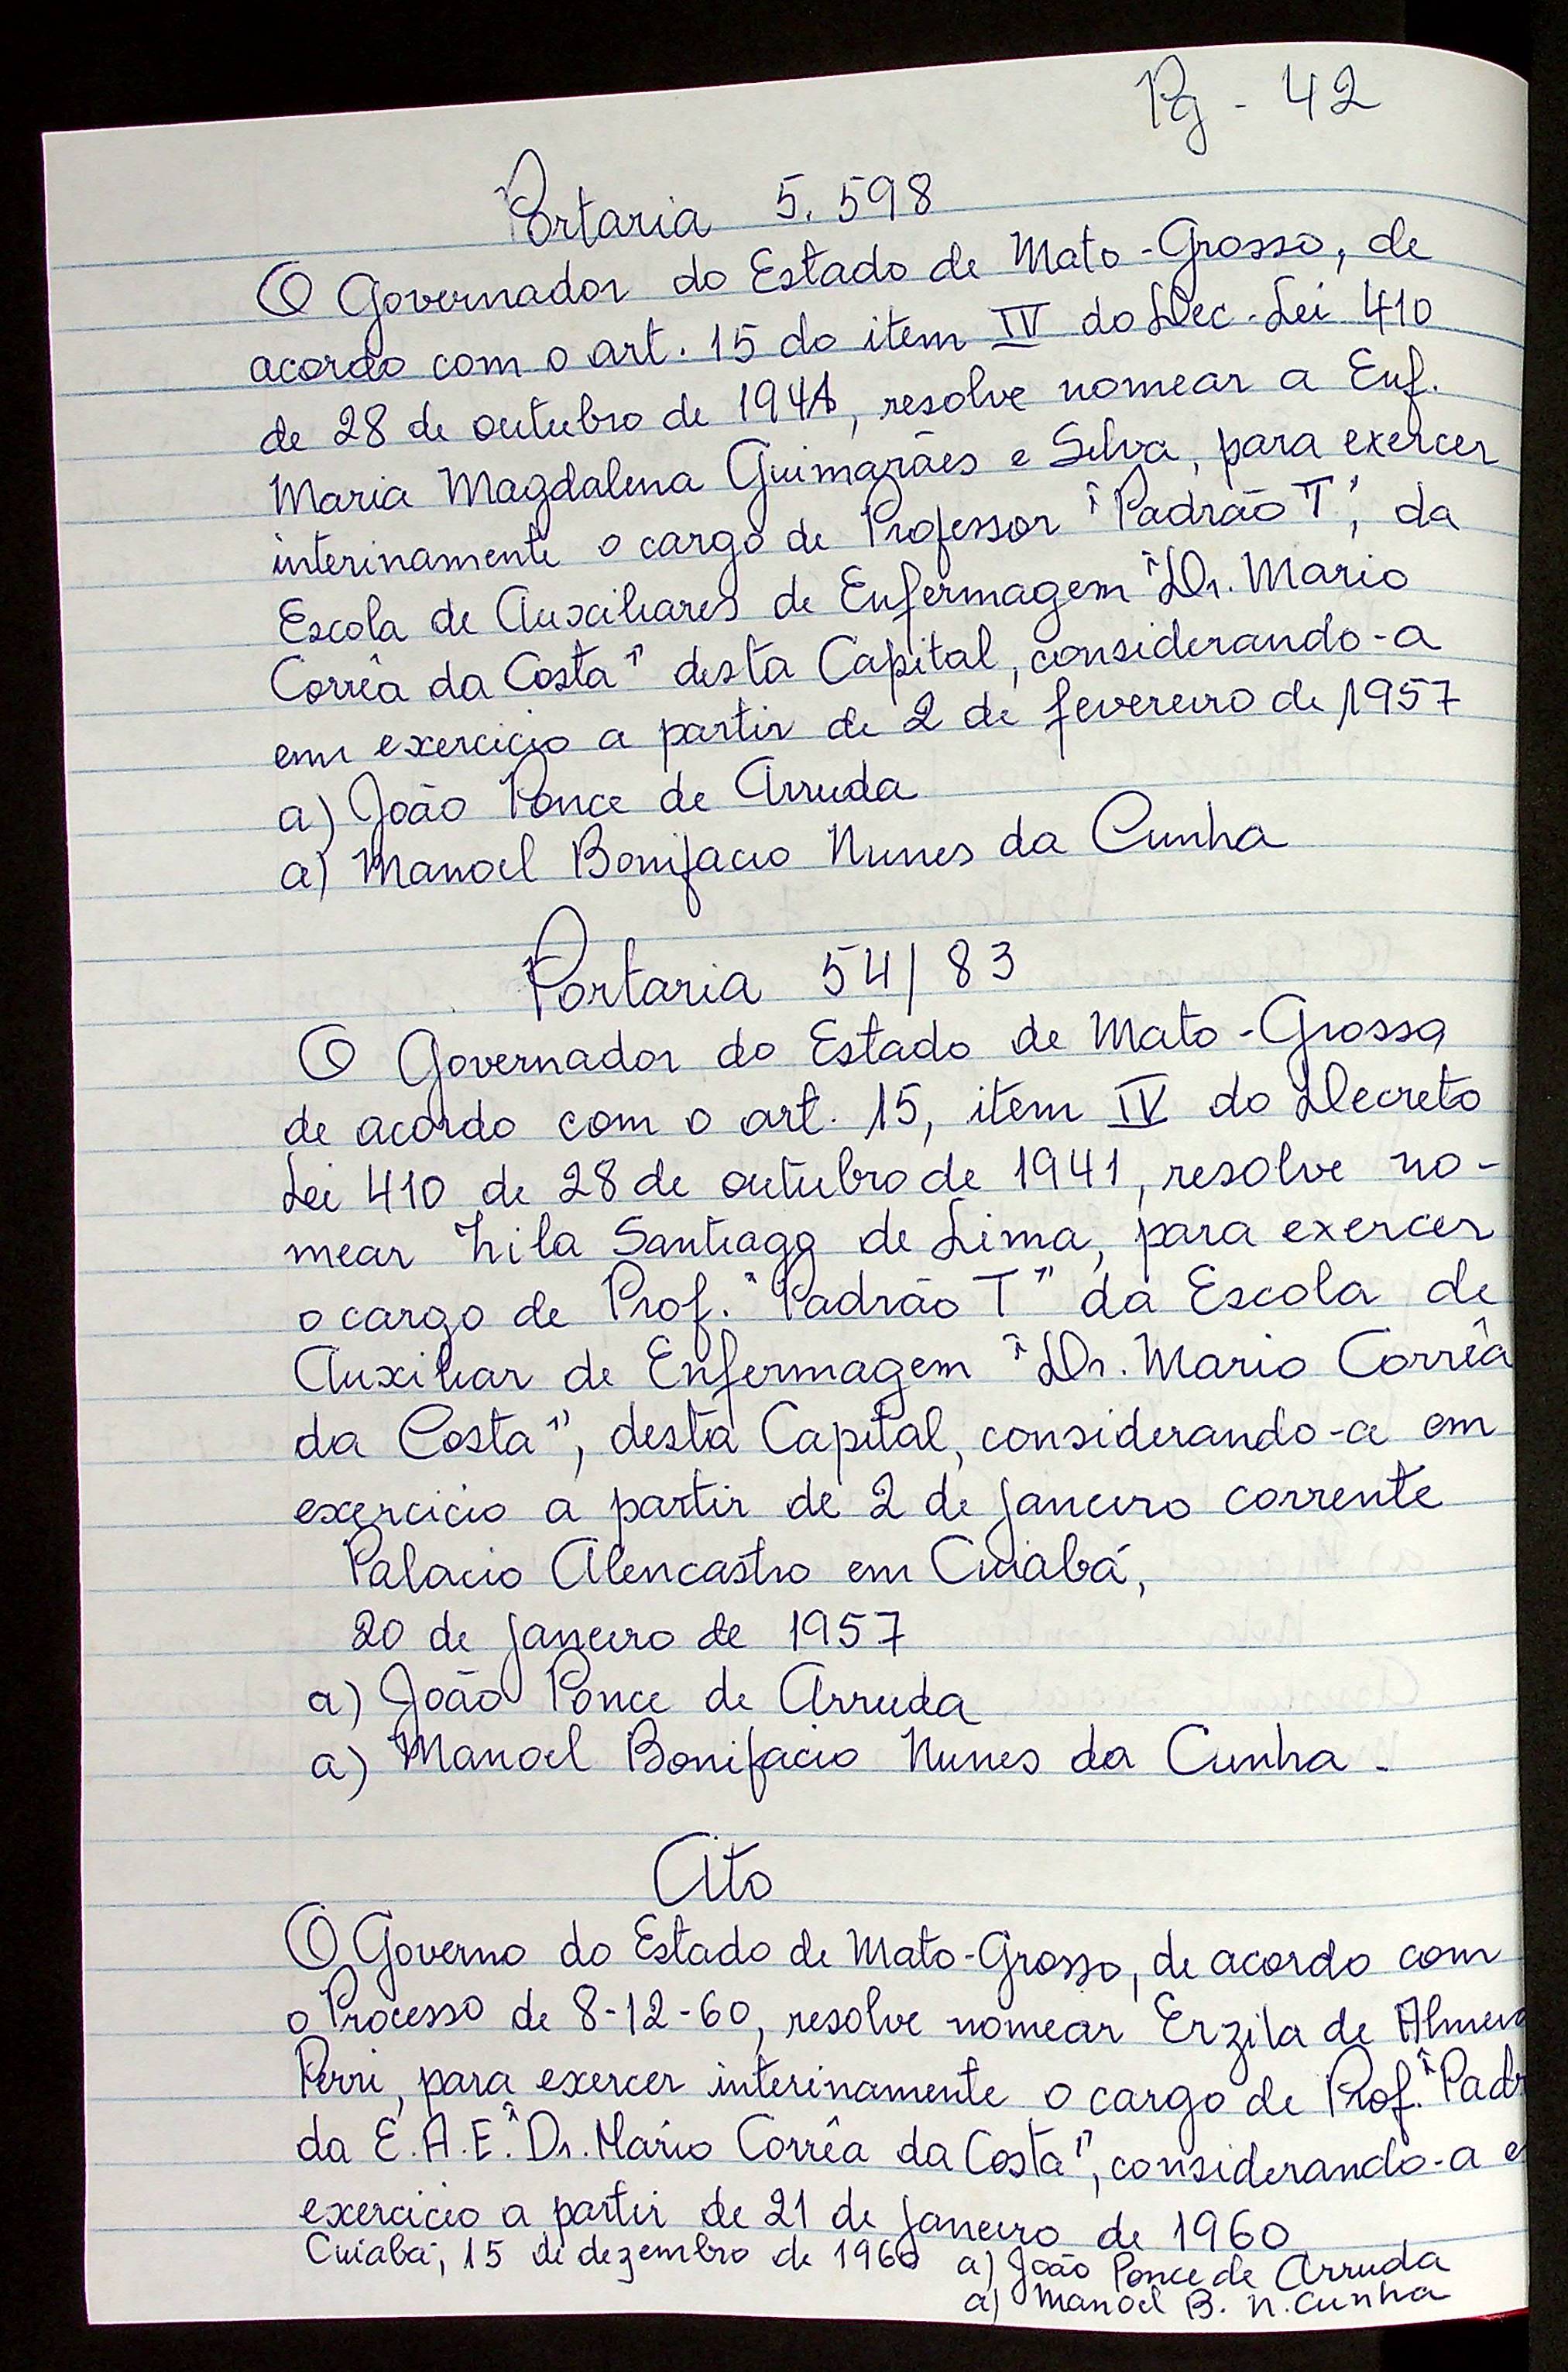 Pg - 42
Portaria 5.598
O Governador do Estado de Mato-Grosso, de
acordo com o art. 15 do item IV do Dec. Lei 410
de 28 de outubro de 1941, resolve nomear a Enf.
Maria Magdalena Guimarães e Silva, para exercer
interinamente o cargo de Professor "Padrão T", da
Escola de Auxiliares de Enfermagem "Dr. Mario
Corrêa da Costa" desta Capital, considerando-a
em exercicio a partir de 2 de fevereiro de 1957
a) João Ponce de Arruda
a) Manoel Bonifacio Nunes da Cunha
Portaria 54/83
O Governador do Estado de Mato-Grosso,
de acordo com o art. 15, item IV do Decreto
Lei 410 de 28 de outubro de 1941, resolve no-
mear Zila Santiago de Lima, para exercer
o cargo de Prof. "Padrão T" da Escola de
Auxiliar de Enfermagem "Dr. Mario Corrêa
da Costa", desta Capital, considerando-a em
exercicio a partir de 2 de janeiro corrente
Palacio Alencastro em Cuiabá,
20 de janeiro de 1957
a) João Ponce de Arruda
a) Manoel Bonifacio Nunes da Cunha.
Ato
O Governo do Estado de Mato-Grosso, de acordo com
o Processo de 8-12-60, resolve nomear Erzila de
Perri, para exercer interinamente o cargo de Prof.
da E.A.E. "Dr. Mario Corrêa da Costa", considerando-a
exercicio a partir de 21 de janeiro de 1960
Cuiabá, 15 de dezembro de 1960 a) João Ponce de Arruda
a) Manoel B. N. Cunha